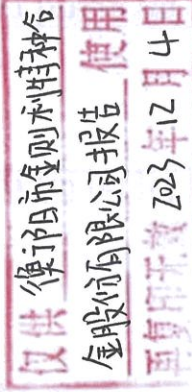 仅供 德阳市金则利特种合
金股份有限公司报告 使用
再复印无效 2023 年 12 月 4 日